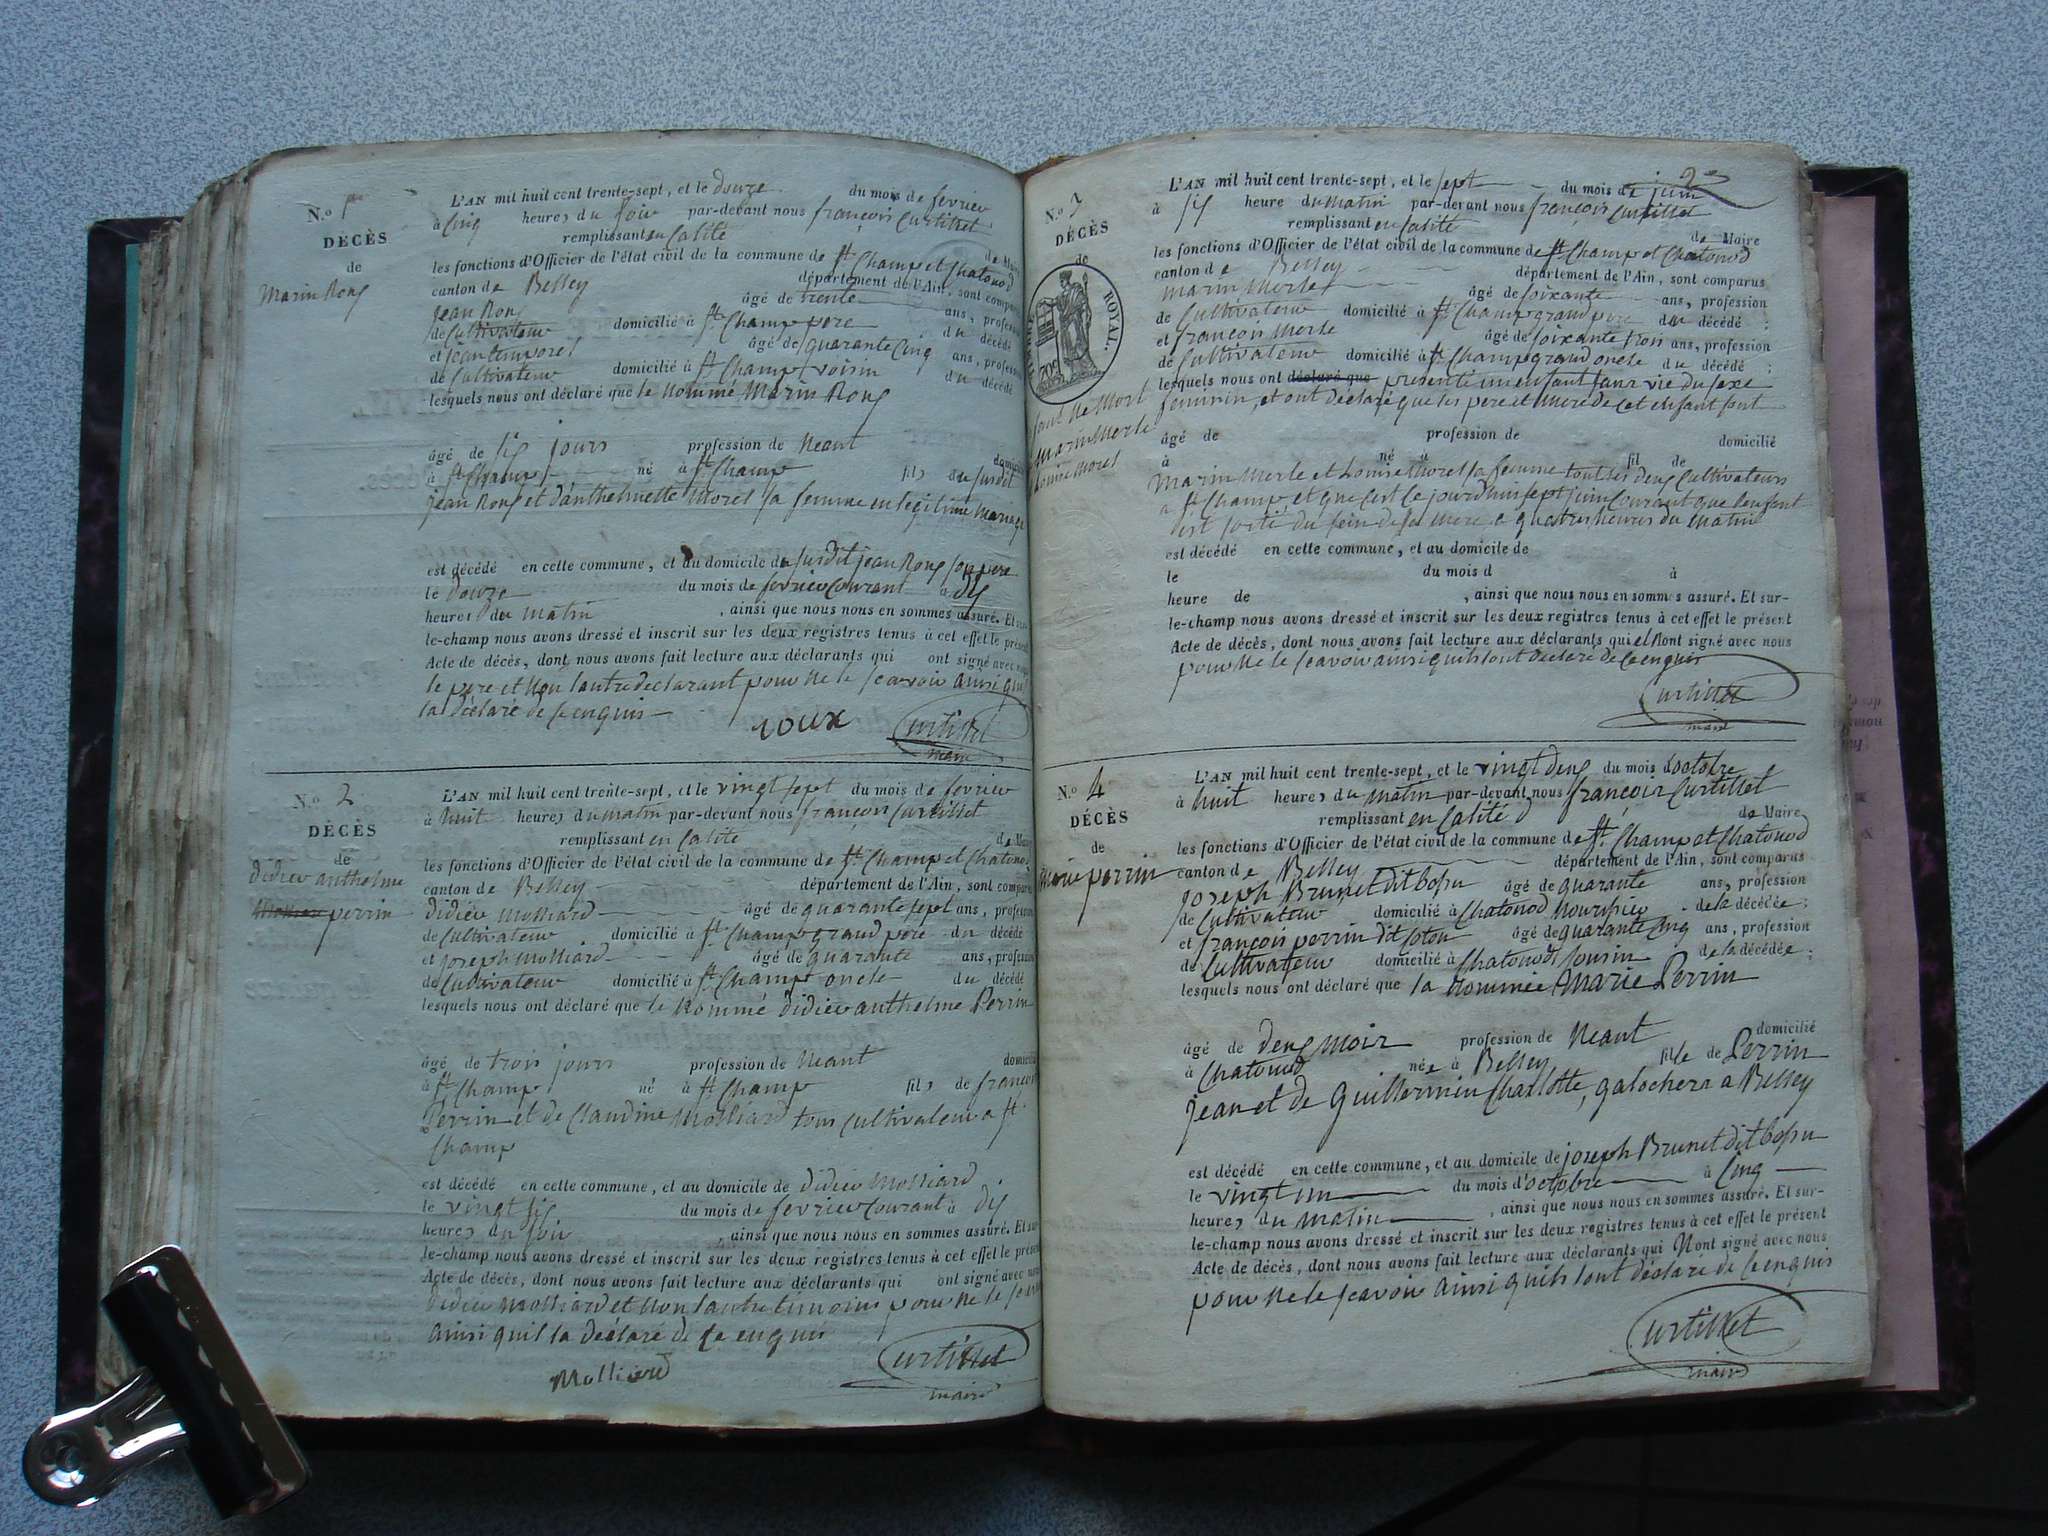 N.o 1er
DÉCÈS
de
Marin Roux
L'AN mil huit cent trente-sept, et le douze du mois de fevrier
à Cinq heures du soir par-devant nous françois Curtillet
remplissant en Calité de Maire
les fonctions d'Officier de l'état civil de la commune de St Champ et Chatonod
canton de Belley département de l'Ain, sont comparus
jean Roux âgé de trente ans, profession
de Cultivateur domicilié à St Champ pere du décédé
et jean temporel âgé de quarante Cinq ans, profession
de Cultivateur domicilié à St Champ voisin du décédé
lesquels nous ont déclaré que le nommé Marin Roux
âgé de six jours profession de Neant domicilié
à St Champ né à St Champ fils du susdit
jean Roux et d'anthelmette Morel sa femme en legitime mariage
est décédé en cette commune, et au domicile du susdit jean Roux son pere
le douze du mois de fevrier Courant à dix
heures du matin, ainsi que nous nous en sommes assuré. Et sur-
le-champ nous avons dressé et inscrit sur les deux registres tenus à cet effet le présent
Acte de décès, dont nous avons fait lecture aux déclarants qui ont signé avec nous
le pere et Non lautre declarant pour Ne le scavoir ainsi quil
la déclaré de Ce enquis
roux Curtillet
maire
N.o 2
DÉCÈS
de
Didier anthelme
perrin
L'AN mil huit cent trente-sept, et le vingt sept du mois de fevrier
à huit heures du matin par-devant nous françois Curtillet
remplissant en Calité de Maire
les fonctions d'Officier de l'état civil de la commune de St Champ et Chatonod
canton de Belley département de l'Ain, sont comparus
Didier Molliard âgé de quarante sept ans, profession
de Cultivateur domicilié à St Champ grand pere du décédé
et joseph Molliard âgé de quarante ans, profession
de Cultivateur domicilié à St Champ oncle du décédé
lesquels nous ont déclaré que le Nommé Didier anthelme Perrin
âgé de trois jours profession de Neant domicilié
à St Champ né à St Champ fils de françois
Perrin et de Claudine Molliard tous Cultivateur a St
Champ
est décédé en cette commune, et au domicile de Didier Molliard
le vingt six du mois de fevrier Courant à dix
heures du soir, ainsi que nous nous en sommes assuré. Et sur-
le-champ nous avons dressé et inscrit sur les deux registres tenus à cet effet le présent
Acte de décès, dont nous avons fait lecture aux déclarants qui ont signé avec nous
Didier Molliard et Non lautre témoins pour Ne le scavoir
ainsi quil la déclaré de Ce enquis
Molliard Curtillet
maire
2
N.o 3
DÉCÈS
de
TIMBRE ROYAL.
70c
fant Ne Mort
Marin Merle
Louise Morel
L'AN mil huit cent trente-sept, et le sept du mois de juin
à six heure du Matin par-devant nous françois Curtillet
remplissant en Calité de Maire
les fonctions d'Officier de l'état civil de la commune de St Champ et Chatonod
canton de Belley département de l'Ain, sont comparus
Marin Merle âgé de soixante ans, profession
de Cultivateur domicilié à St Champ grand pere du décédé ;
et françois Merle âgé de soixante trois ans, profession
de Cultivateur domicilié à St Champ grand oncle du décédé ;
lesquels nous ont déclaré que presenté un enfant sans vie du sexe
feminin, et ont déclaré que les pere et mere de cet enfant sont
âgé de profession de domicilié
à né à fil de
Marin Merle et Louise Morel sa femme tout les deux Cultivateurs
a St Champ et que cest le jourdhui sept juin Courant que lenfant
est sorti du sein de sa mere a quatres heures du Matin
est décédé en cette commune, et au domicile de
le du mois d à
heure de , ainsi que nous nous en sommes assuré. Et sur-
le-champ nous avons dressé et inscrit sur les deux registres tenus à cet effet le présent
Acte de décès, dont nous avons fait lecture aux déclarants qui et Nont signé avec nous
pour Ne le scavoir ainsi quils lont déclaré de Ce enquis
Curtillet
maire
N.o 4
DÉCÈS
de
Marie perrin
L'AN mil huit cent trente-sept, et le vingt deux du mois d'octobre
à huit heures du matin par-devant nous françois Curtillet
remplissant en Calité d de Maire
les fonctions d'Officier de l'état civil de la commune de St Champ et Chatonod
canton de Belley département de l'Ain, sont comparus
joseph Brunet dit bossu âgé de quarante ans, profession
de Cultivateur domicilié à Chatonod Nourrisier de la décédée ;
et françois perrin dit âgé de quarante Cinq ans, profession
de Cultivateur domicilié à Chatonod Cousin de la décédée ;
lesquels nous ont déclaré que la Nommée Marie Perrin
âgé de deux Mois profession de Neant domicilié
à Chatonod née à Belley fille de Perrin
jean et de Guillermin Charlotte, galochera a Belley
est décédé en cette commune, et au domicile de joseph Brunet dit bossu
le vingt un du mois d'octobre à Cinq
heures du Matin, ainsi que nous nous en sommes assuré. Et sur-
le-champ nous avons dressé et inscrit sur les deux registres tenus à cet effet le présent
Acte de décès, dont nous avons fait lecture aux déclarants qui Nont signé avec nous
pour Ne le scavoir ainsi quils lont déclaré de Ce enquis
Curtillet
maire